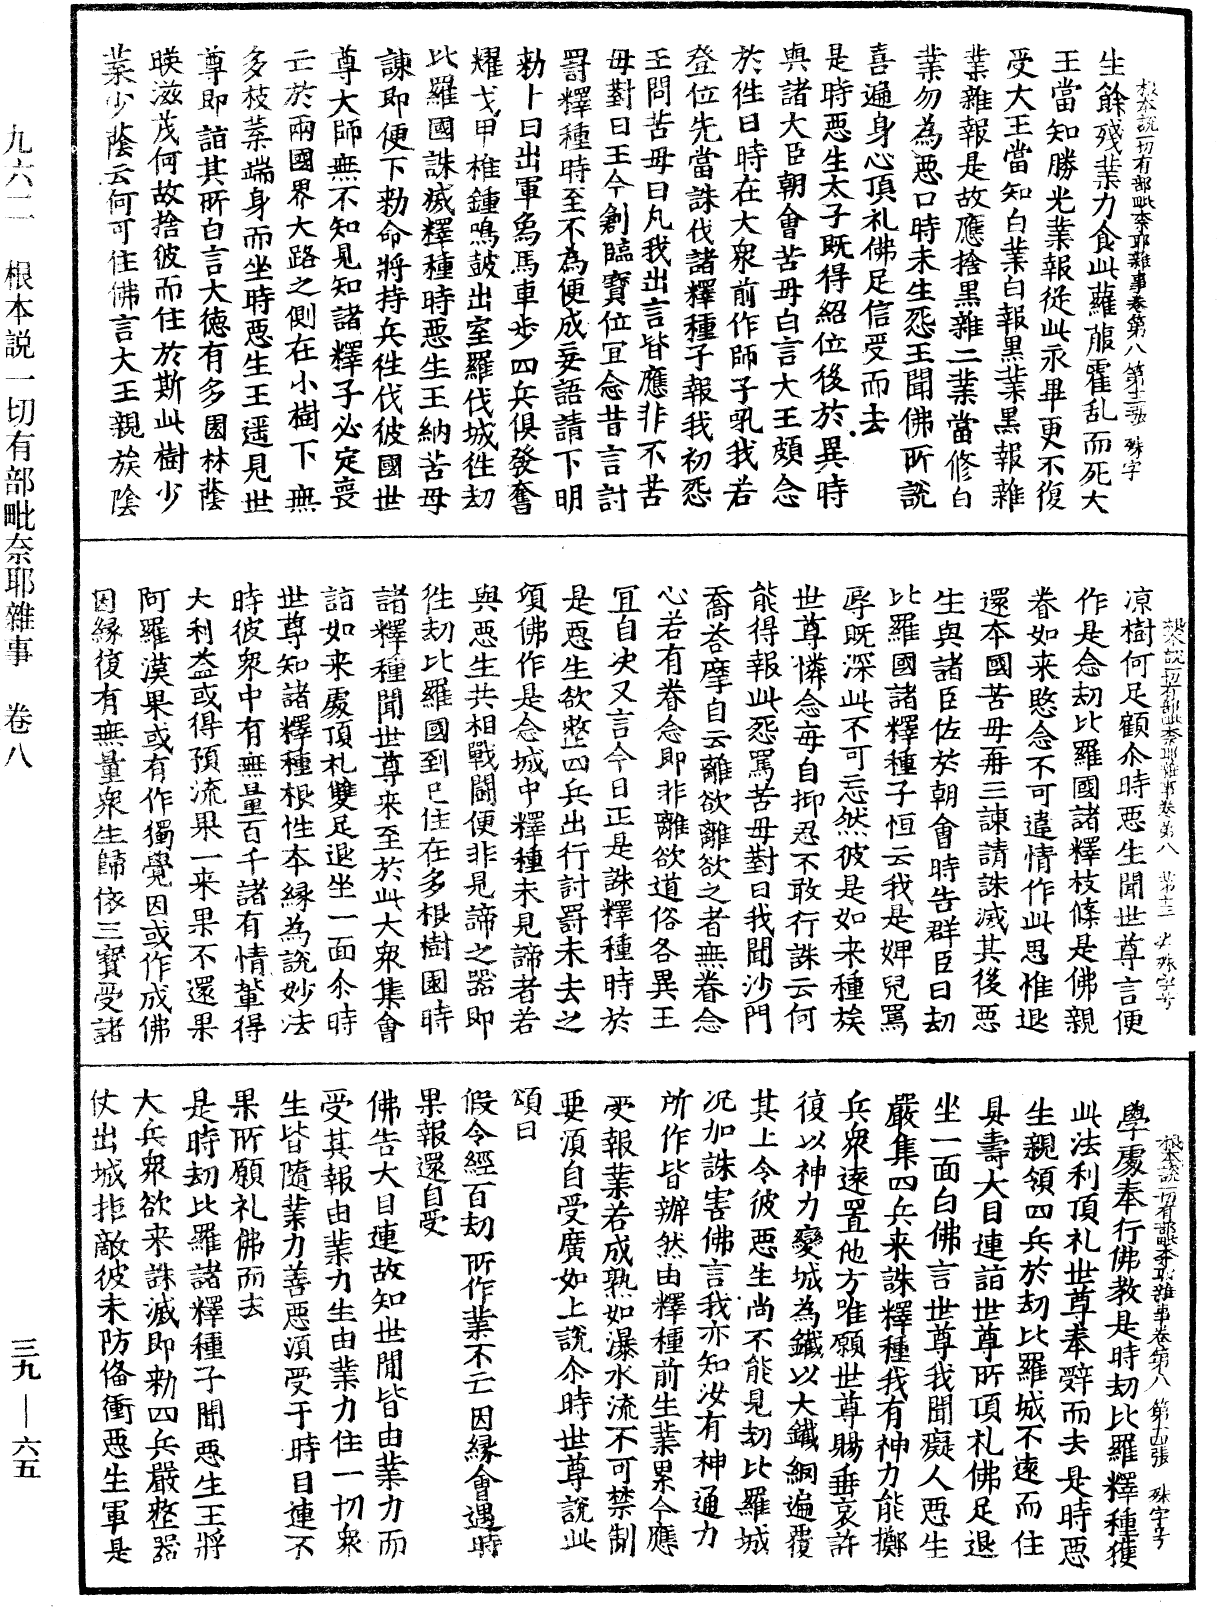 根本說一切有部毗奈耶雜事卷第八 第十二張 殊字
生餘殘業力食此蘿菔霍乱而死大
王當知勝光業報從此永畢更不復
受大王當知白業白報黑業黑報雜
業雜報是故應捨黑雜二業當修白
業勿為惡口時未生怨王聞佛所說
喜遍身心頂礼佛足信受而去
是時惡生太子既得紹位後於異時
與諸大臣朝會苦母白言大王頗念
於往日時在大衆前作師子吼我若
登位先當誅伐諸釋種子報我初怨
王問苦母曰凡我出言皆應非不苦
母對曰王今創臨寶位宜念昔言討
罰釋種時至不為便成妄語請下明
勑卜日出軍象馬車步四兵俱發奮
耀戈甲椎鍾鳴皷出室羅伐城往劫
比羅國誅滅釋種時惡生王納苦母
諫即便下勑命將持兵往伐彼國世
尊大師無不知見知諸釋子必定喪
亡於兩國界大路之側在小樹下無
多枝葉端身而坐時惡生王遥見世
尊即詣其所白言大德有多園林蔭
暎滋茂何故捨彼而住於斯此樹少
葉少蔭云何可住佛言大王親族陰
根本說一切有部毗奈耶雜事卷第八 第十三 殊字号
凉樹何足顧尒時惡生聞世尊言便
作是念劫比羅國諸釋枝條是佛親
眷如来愍念不可違情作此思惟退
還本國苦母再三諫請誅滅其後惡
生與諸臣佐於朝會時告群臣曰劫
比羅國諸釋種子恒云我是婢兒罵
辱既深此不可忘然彼是如来種族
世尊憐念每自抑忍不敢行誅云何
能得報此怨罵苦母對曰我聞沙門
喬荅摩自云離欲離欲之者無眷念
心若有眷念即非離欲道俗各異王
宜自决又言今日正是誅釋種時於
是惡生欲整四兵出行討罰未去之
頃佛作是念城中釋種未見諦者若
與惡生共相戰鬪便非見諦之器即
往劫比羅國到已住在多根樹園時
諸釋種聞世尊来至於此大衆集會
詣如来處頂礼雙足退坐一面尒時
世尊知諸釋種根性本緣為說妙法
時彼衆中有無量百千諸有情輩得
大利益或得預流果一来果不還果
阿羅漢果或有作獨覺因或作成佛
因緣復有無量衆生歸依三寶受諸
根本說一切有部毗奈耶雜事卷第八 第十四張 殊字号
學處奉行佛教是時劫比羅釋種獲
此法利頂礼世尊奉辭而去是時惡
生親領四兵於劫比羅城不遠而住
具壽大目連詣世尊所頂礼佛足退
坐一面白佛言世尊我聞癡人惡生
嚴集四兵来誅釋種我有神力能擲
兵衆遠置他方唯願世尊賜垂哀許
復以神力變城為鐵以大鐵網遍覆
其上令彼惡生尚不能見劫比羅城
况加誅害佛言我亦知汝有神通力
所作皆辦然由釋種前生業累今應
受報業若成熟如瀑水流不可禁制
要須自受廣如上說尒時世尊說此
頌曰
假令經百劫 所作業不亡 因緣會遇時
果報還自受
佛告大目連故知世閒皆由業力而
受其報由業力生由業力住一切衆
生皆隨業力善惡須受于時目連不
果所願礼佛而去
是時劫比羅諸釋種子聞惡生王將
大兵衆欲来誅滅即勑四兵嚴整器
仗出城拒敵彼未防俻衝惡生軍是
九六二 根本説一切有部毗奈耶雜事 卷八
三九—六五